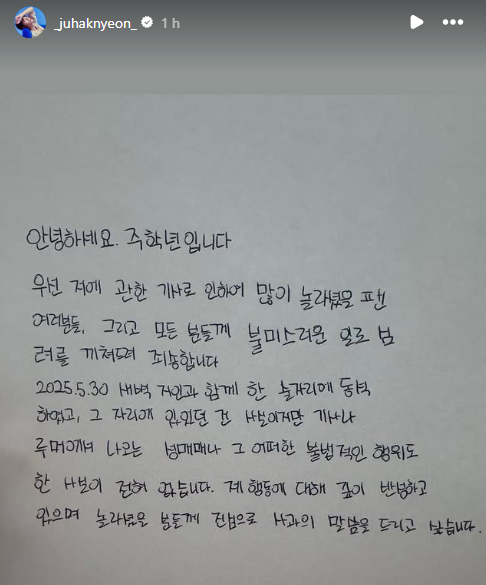 _juhaknyeon_ 1 h
안녕하세요. 주학년입니다
우선 저에 관한 기사로 인하여 많이 놀라셨을 팬
여러분들, 그리고 모든 분들께 불미스러운 일로 심
려를 끼쳐드려 죄송합니다
2025.5.30 새벽 지인과 함께 한 술자리에 동석
하였고, 그 자리에 있었던 건 사실이지만 기사나
루머에서 나오는 성매매나 그 어떠한 불법적인 행위도
한 사실이 전혀 없습니다. 제 행동에 대해 깊이 반성하고
있으며 놀라셨을 분들께 진심으로 사과의 말씀을 드리고 싶습니다.